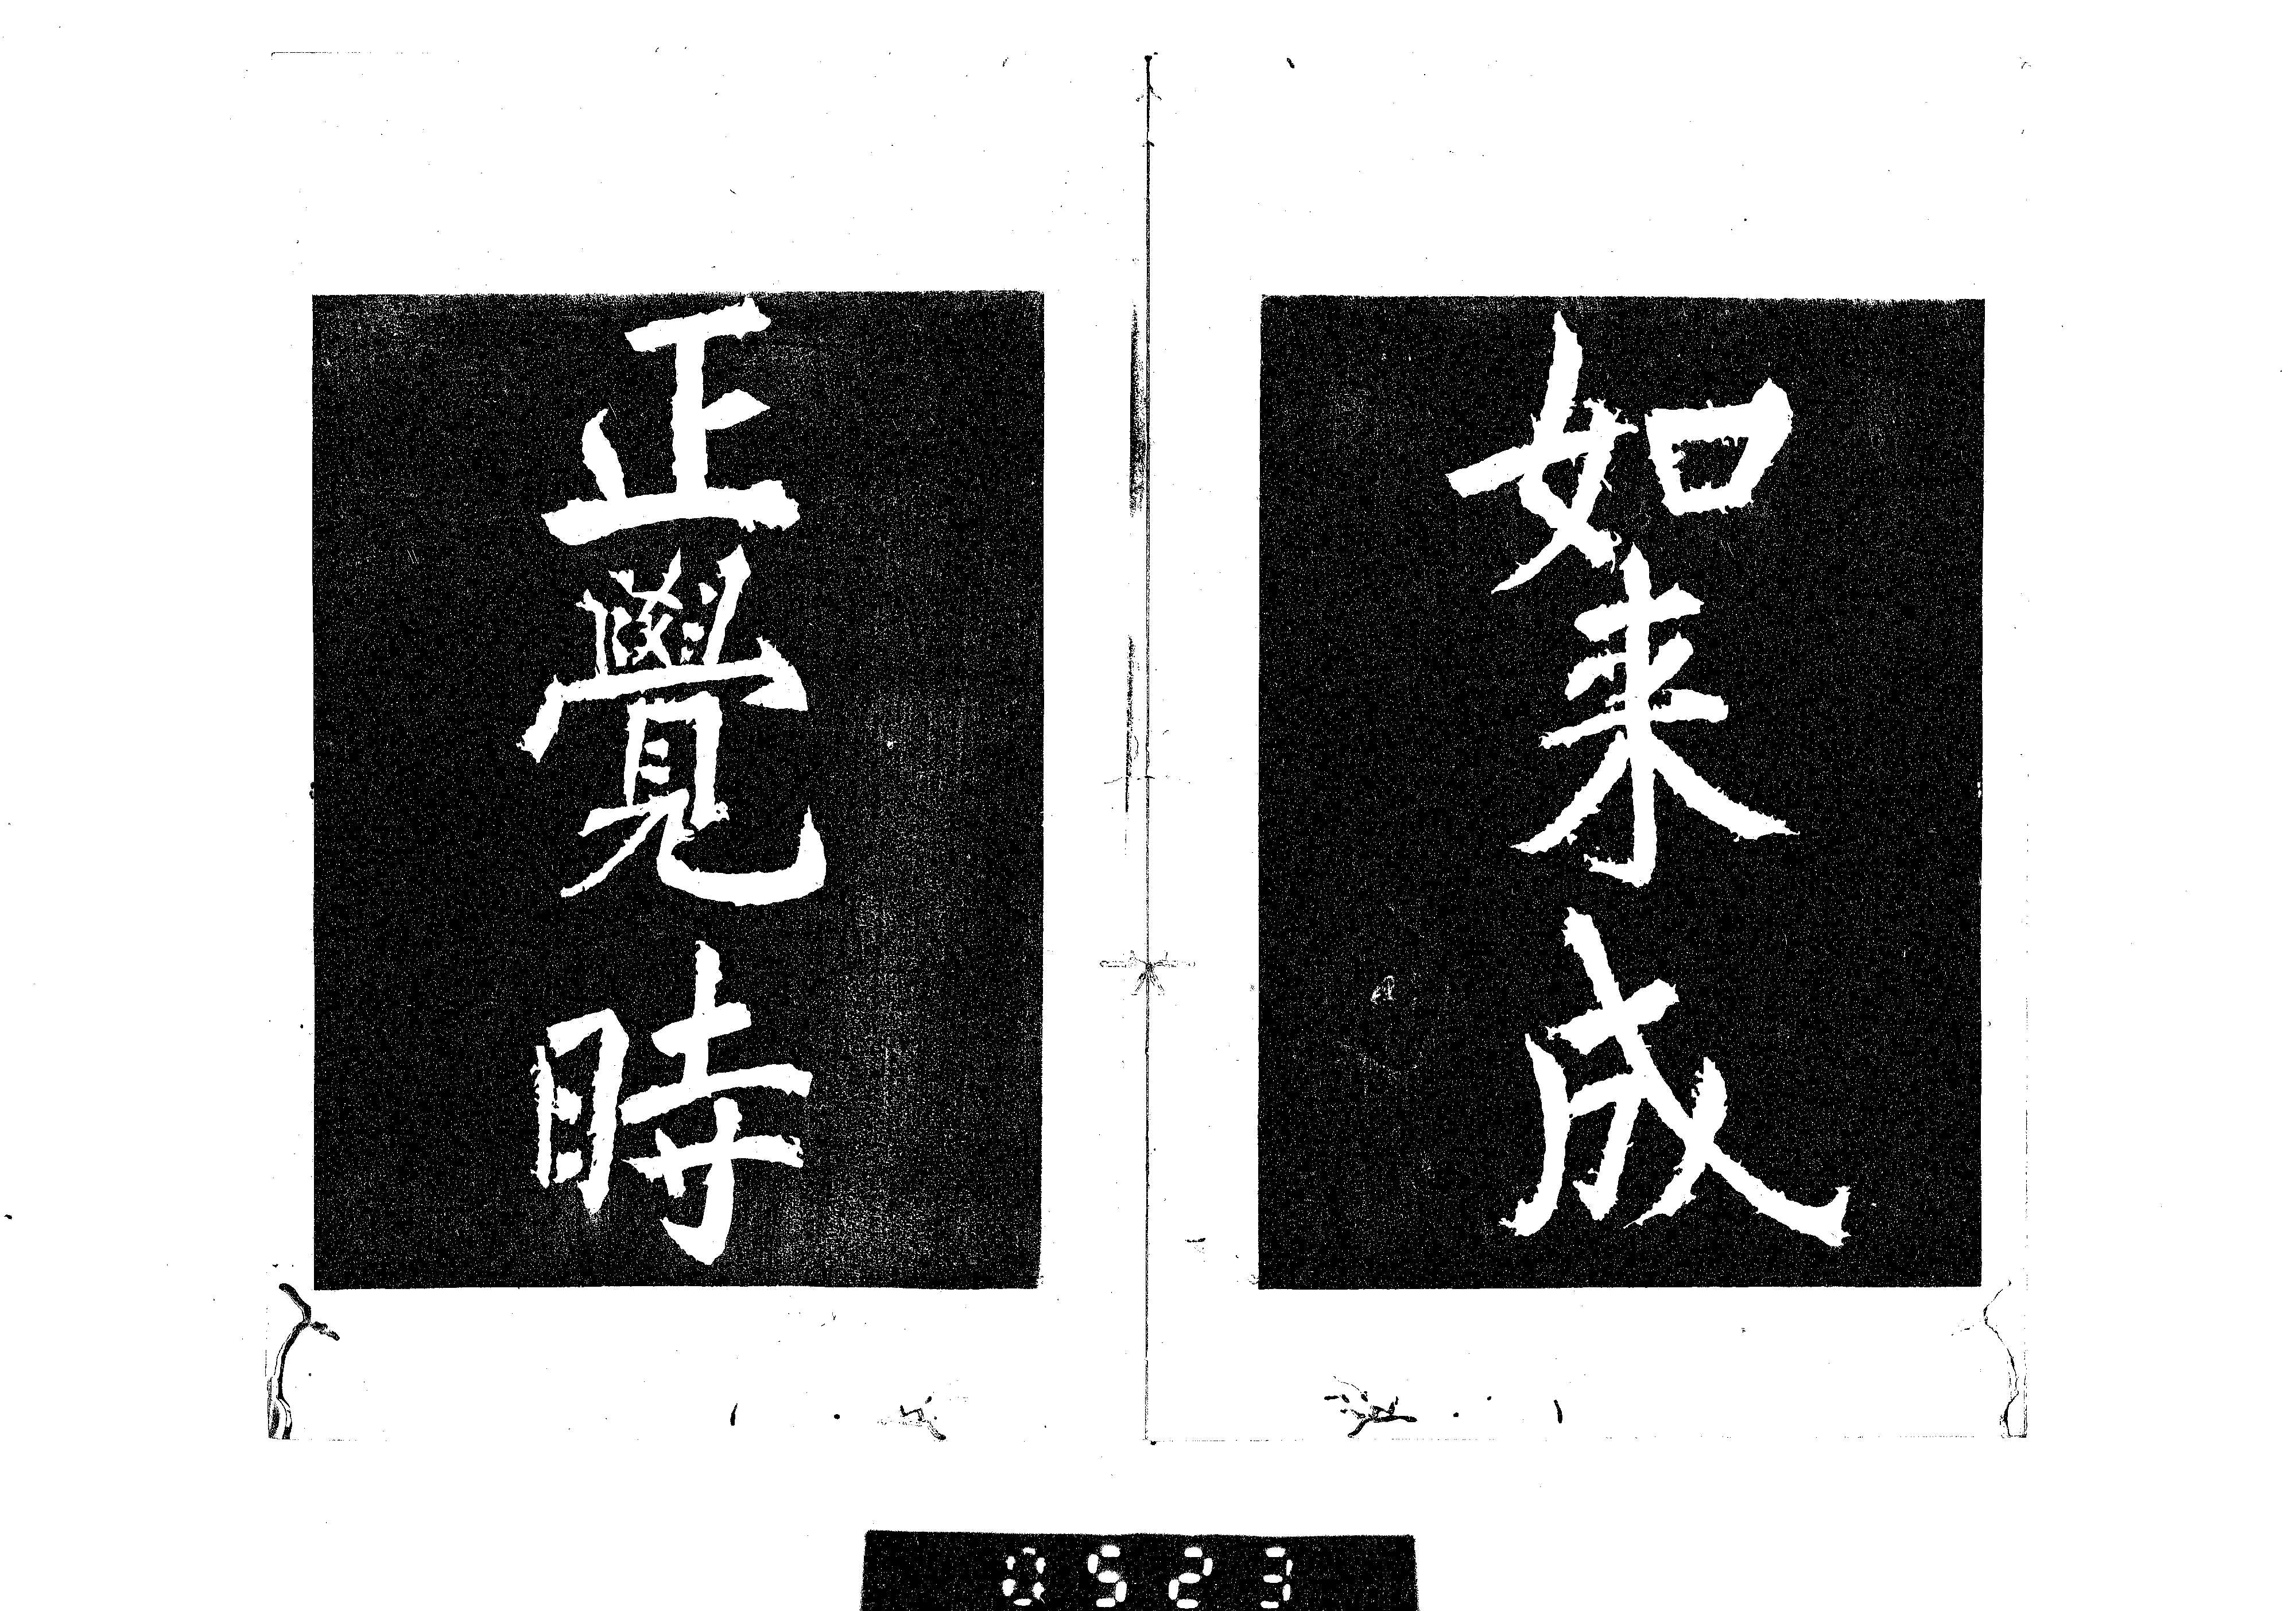 如来成
正覺時
0523